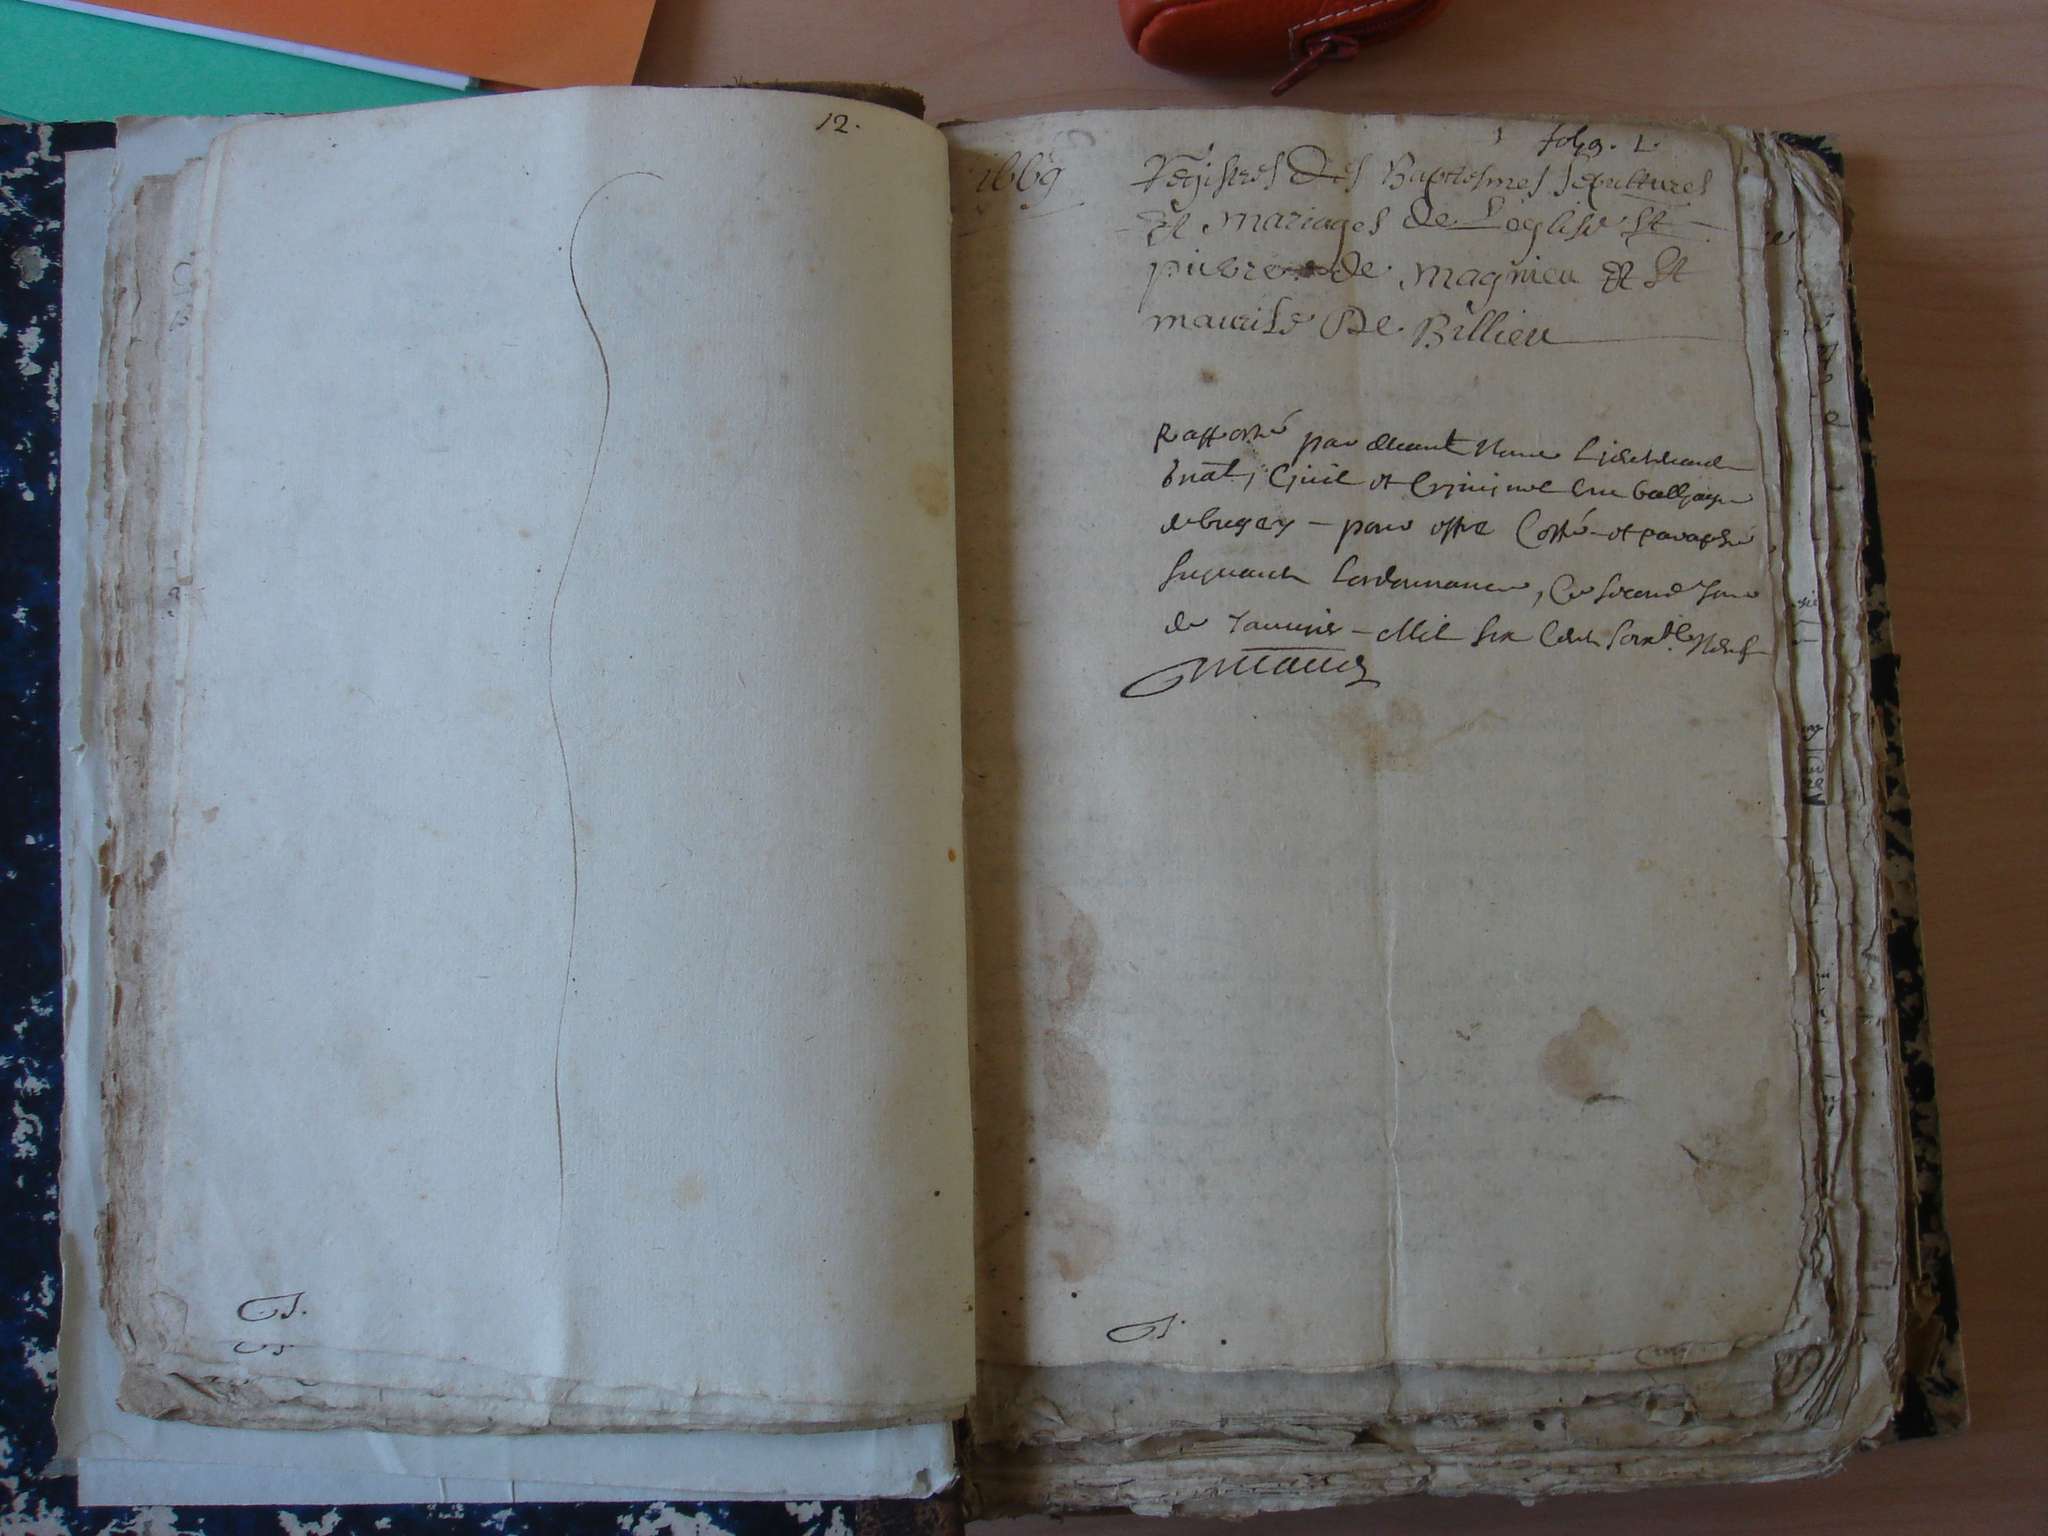 12.
folio. 1.
1669
Registres Des Baptesmes sepultures
Et mariages de L'eglise St
pierre de magnieu Et St
maurise De Billieu
par devant Nous Lieutenant
gnāl, Civil et Criminel au balliage
de bugey - pour estre Cotté et paraphé
suyvant Lordonnance, Ce second Jour
de Janvier - Mil six Cent soixte Neuf